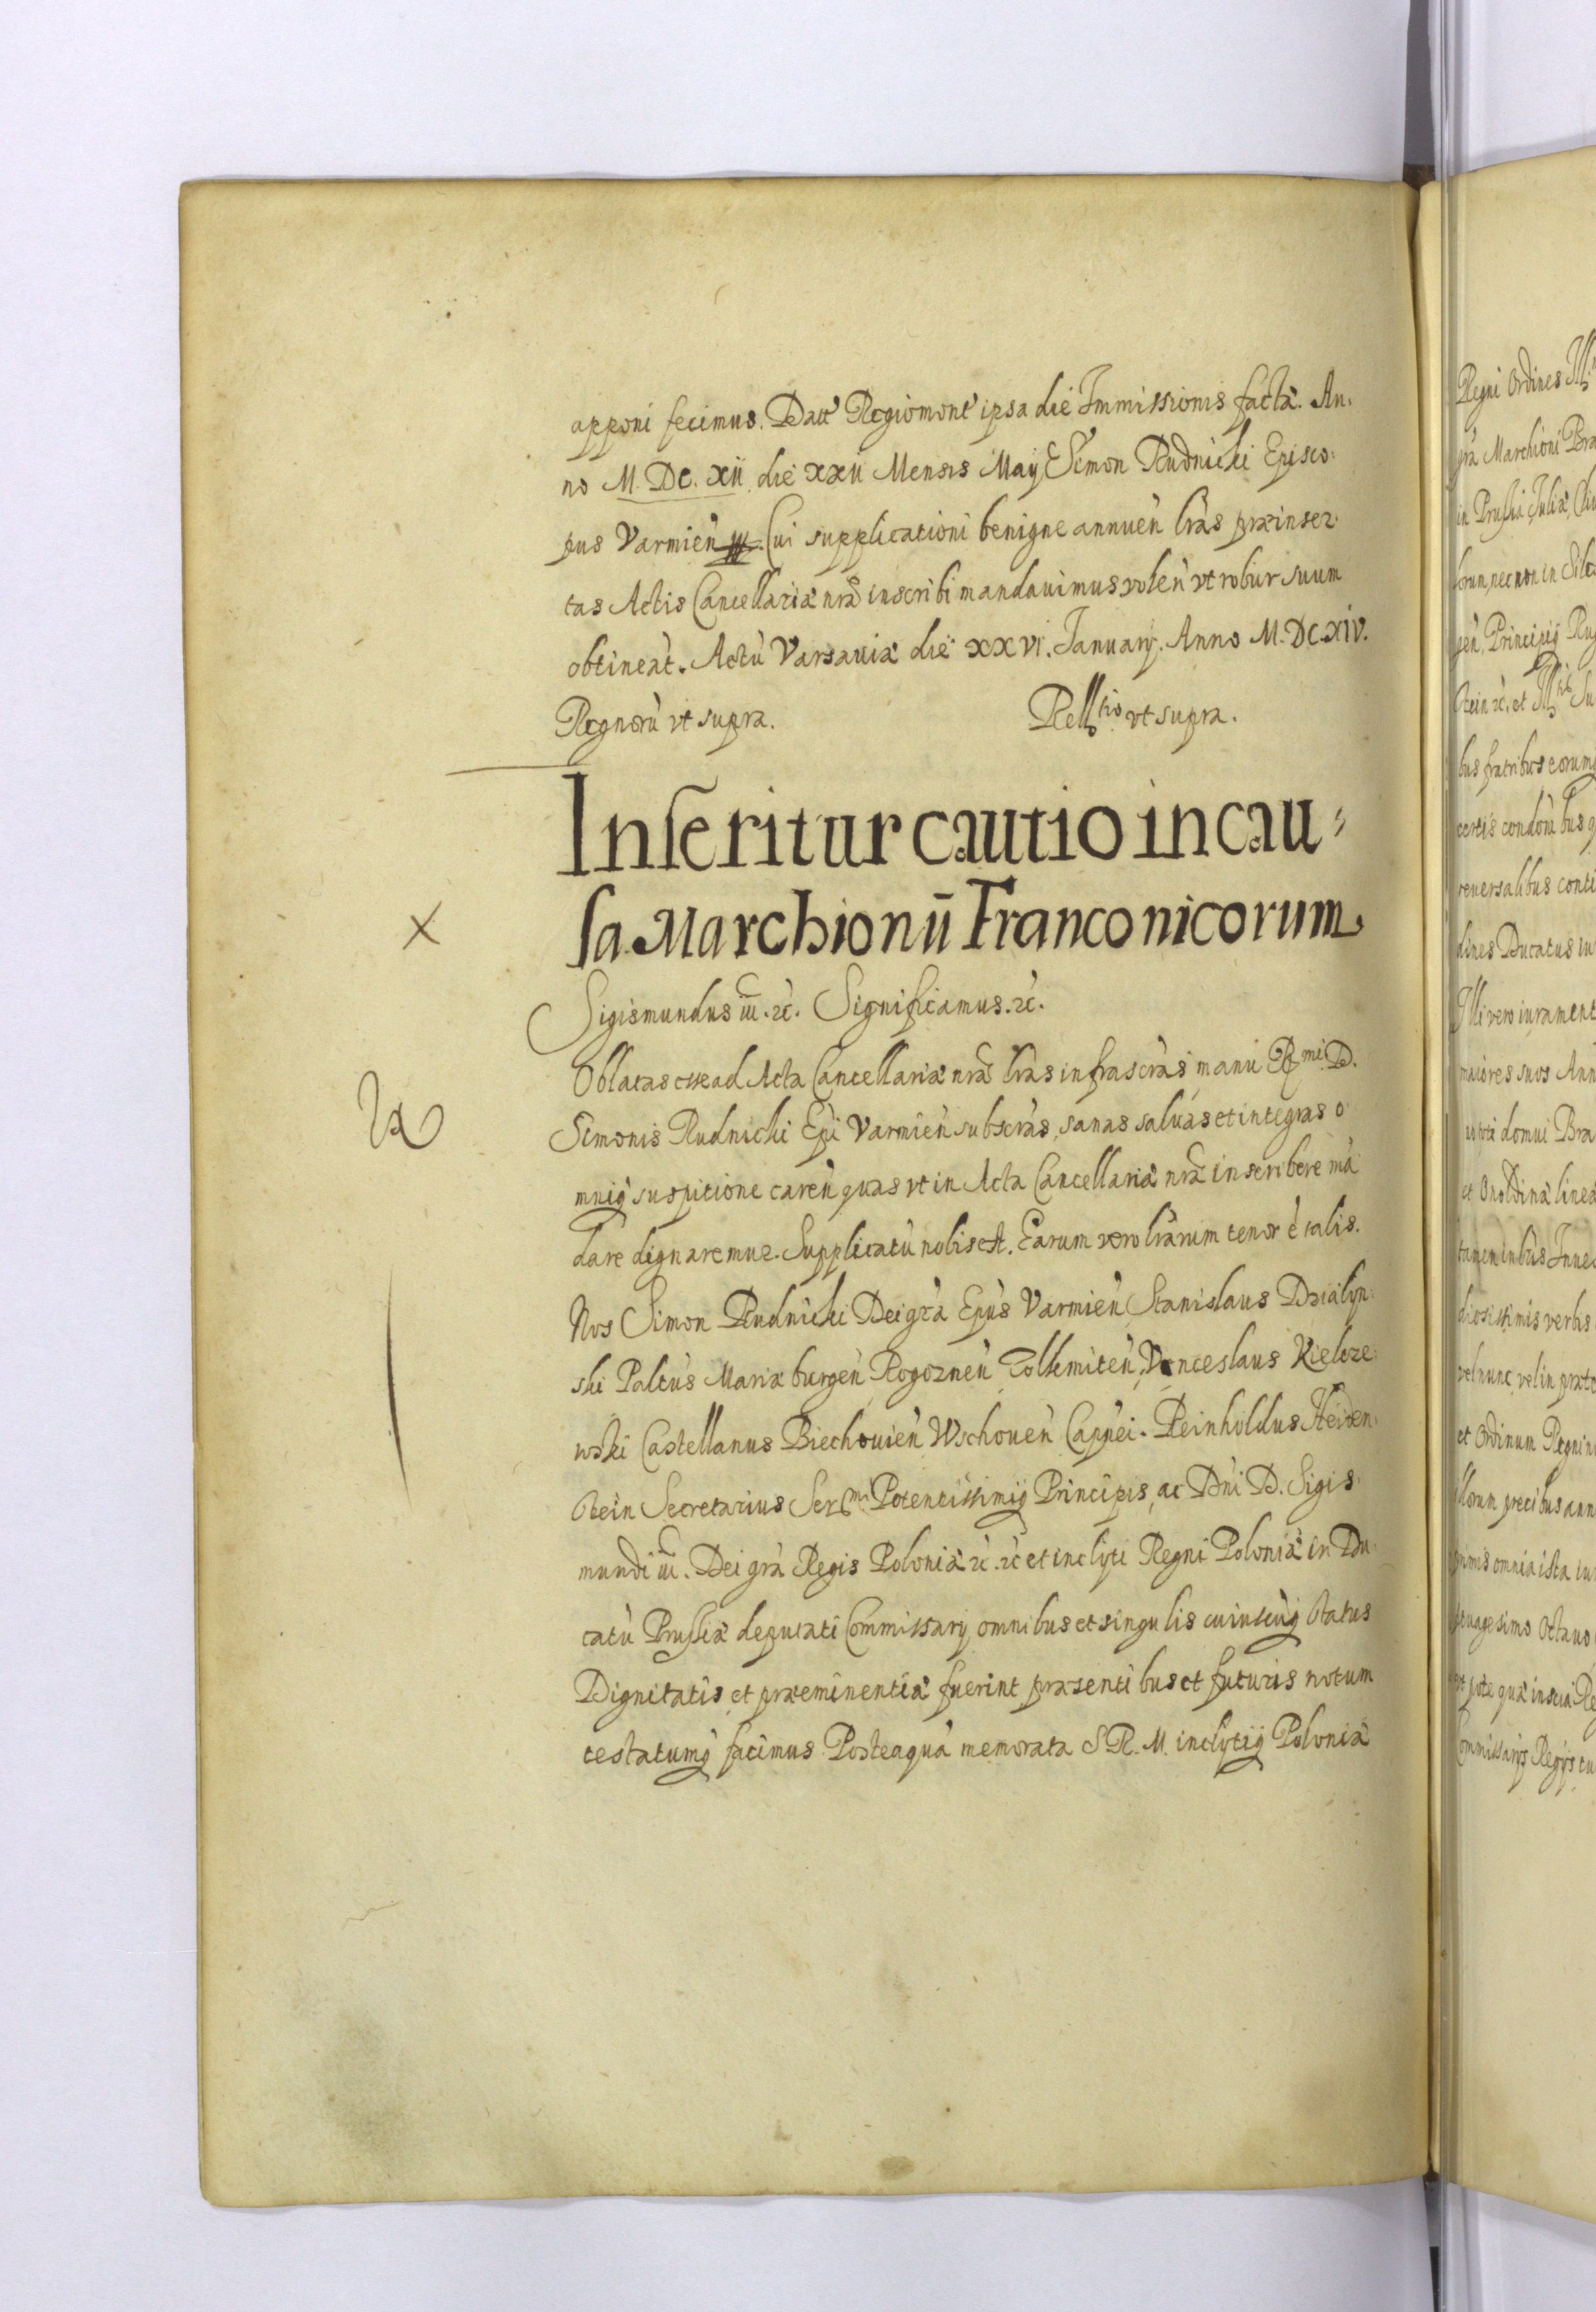 apponi fecimus. Datt' Regiomont' ipsa die Immissionis factæ. An.
no M. DC. xii die xxii Mensis Maij Simon Rudnicki Episco.
pus Varmień Cui supplicationi benigne annuen̄ lr̃as præinser.
tas Actis Cancellariæ nr̃æ inscribi mandauimus volen̄ vt robur suum
obtineāt. Actū Varsauiæ die xxvi. Januarij. Anno M. DC. xiv.
Regnorū vt supra. Rell^tio vt supra.
Inseritur cautio in cau-
sa Marchionū Franconicorum
Sigismundus iii. ꝛc. Significamus. ꝛc.
Oblatas esse ad Acta Cancellariæ nr̃æ lr̃as infrascr̃as manu R^mi D.
Simonis Rudnicki Ep̃i Varmień subscr̃as, sanas saluas et integras o
mniq̧ suspitione caren̄ quas vt in Acta Cancellariæ nr̃æ inscribere mā
dare dignaremur. Supplicatū nobis est. Earum vero lr̃arum tenor ē talis.
Nos Simon Rudnicki Dei gr̃a Ep̃us Varmień Stanislaus Dzialyn.
ski Palt̃us Mariæburgeń Rogozneń Tolkemiteń, Venceslaus Kielcze.
wski Castellanus Biechouień Wschoueń Cap̃nei. Reinholdus Heiden.
stein Secretarius Ser^mi Potentissimiq̧ Principis, ac Dñi D. Sigis.
mundi iii. Dei gr̃a Regis Poloniæ ꝛc. ꝛc et inclyti Regni Poloniæ in Du.
catū Prussiæ deputati Commissarij omnibus et singulis cuiuscūq̧ status
Dignitatis et præeminentiæ fuerint præsentibus et futuris notum
testatumq̧ facimus Posteaquā memorata S. R. M. inclytiq̧ Poloniæ
Regni Ordines Ill
gr̃a Marchioni Bra
in Prussia Juliæ,
forum, nec non in Sile
geń, Principiq̧ Rug
stein ꝛc. et Ill
bus fratribus eorumq̧
certis condoñibus
reuersalibus conti
dines Ducatus
Illi vero iurament
maiores suos Ann
domui Bra
et Onoldinæ lineæ
diosissimis verbis
vel nunc, vel in præte
et Ordinum Regni
illorum precibus ann
primis omnia ista
tuagesimo Octauo
Commissarijs Regijs